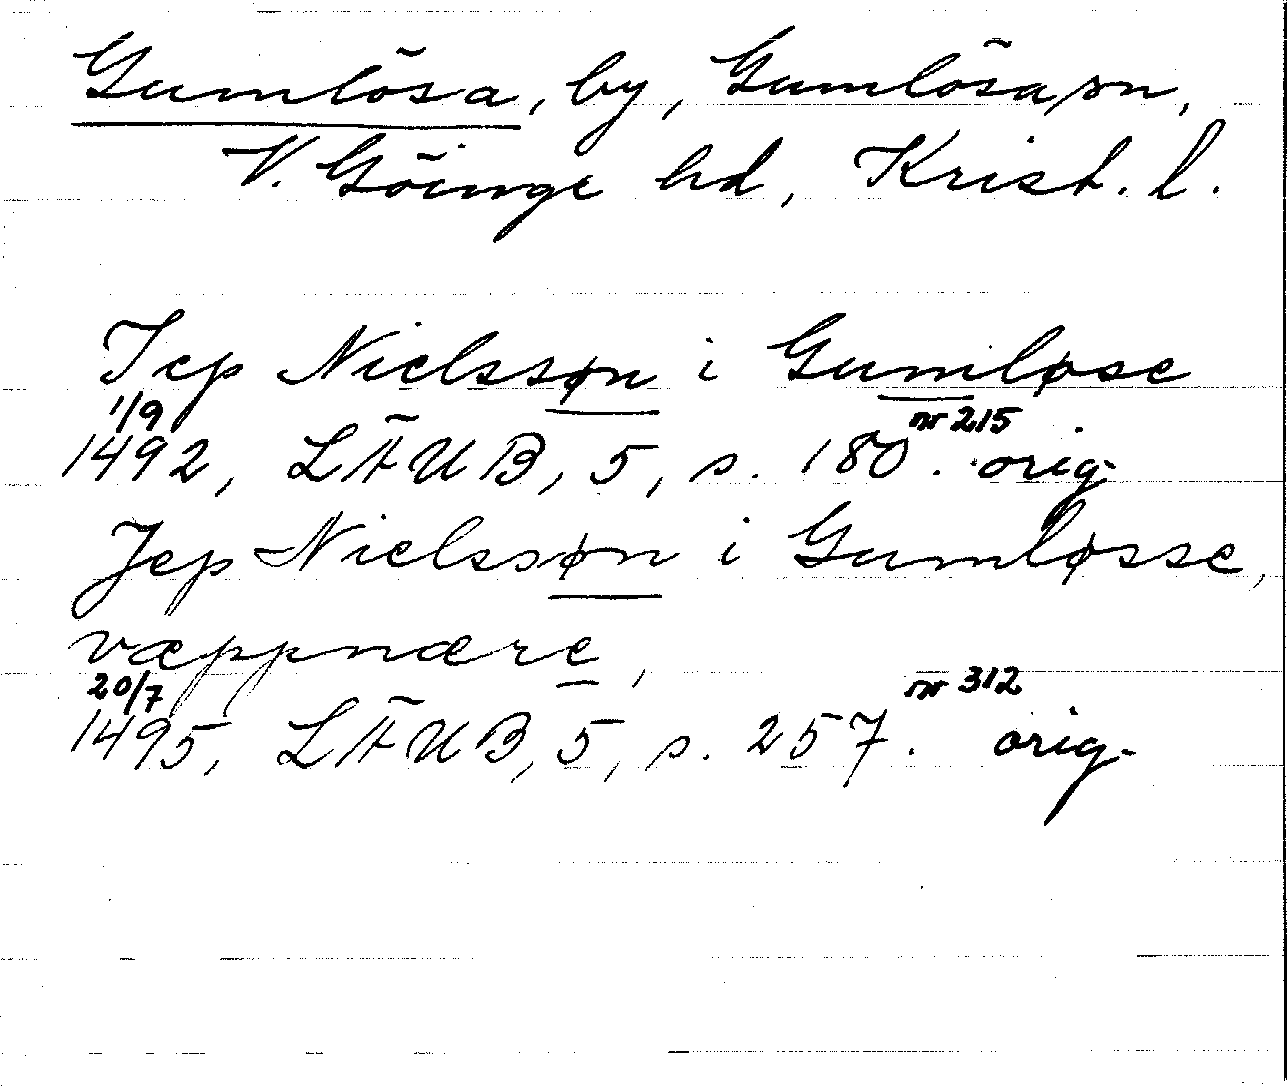 Gumlösa, by, Gumlösa sn,
V. Göinge hd, Krist. l.
Jep Nielssøn i Gumløse
1/9 nr 215
1492, LÄUB, 5, s. 180. orig.
Jep Nielssøn i Gumløsse,
væppnære,
20/7 nr 312
1495, LÄUB, 5, s. 257. orig.